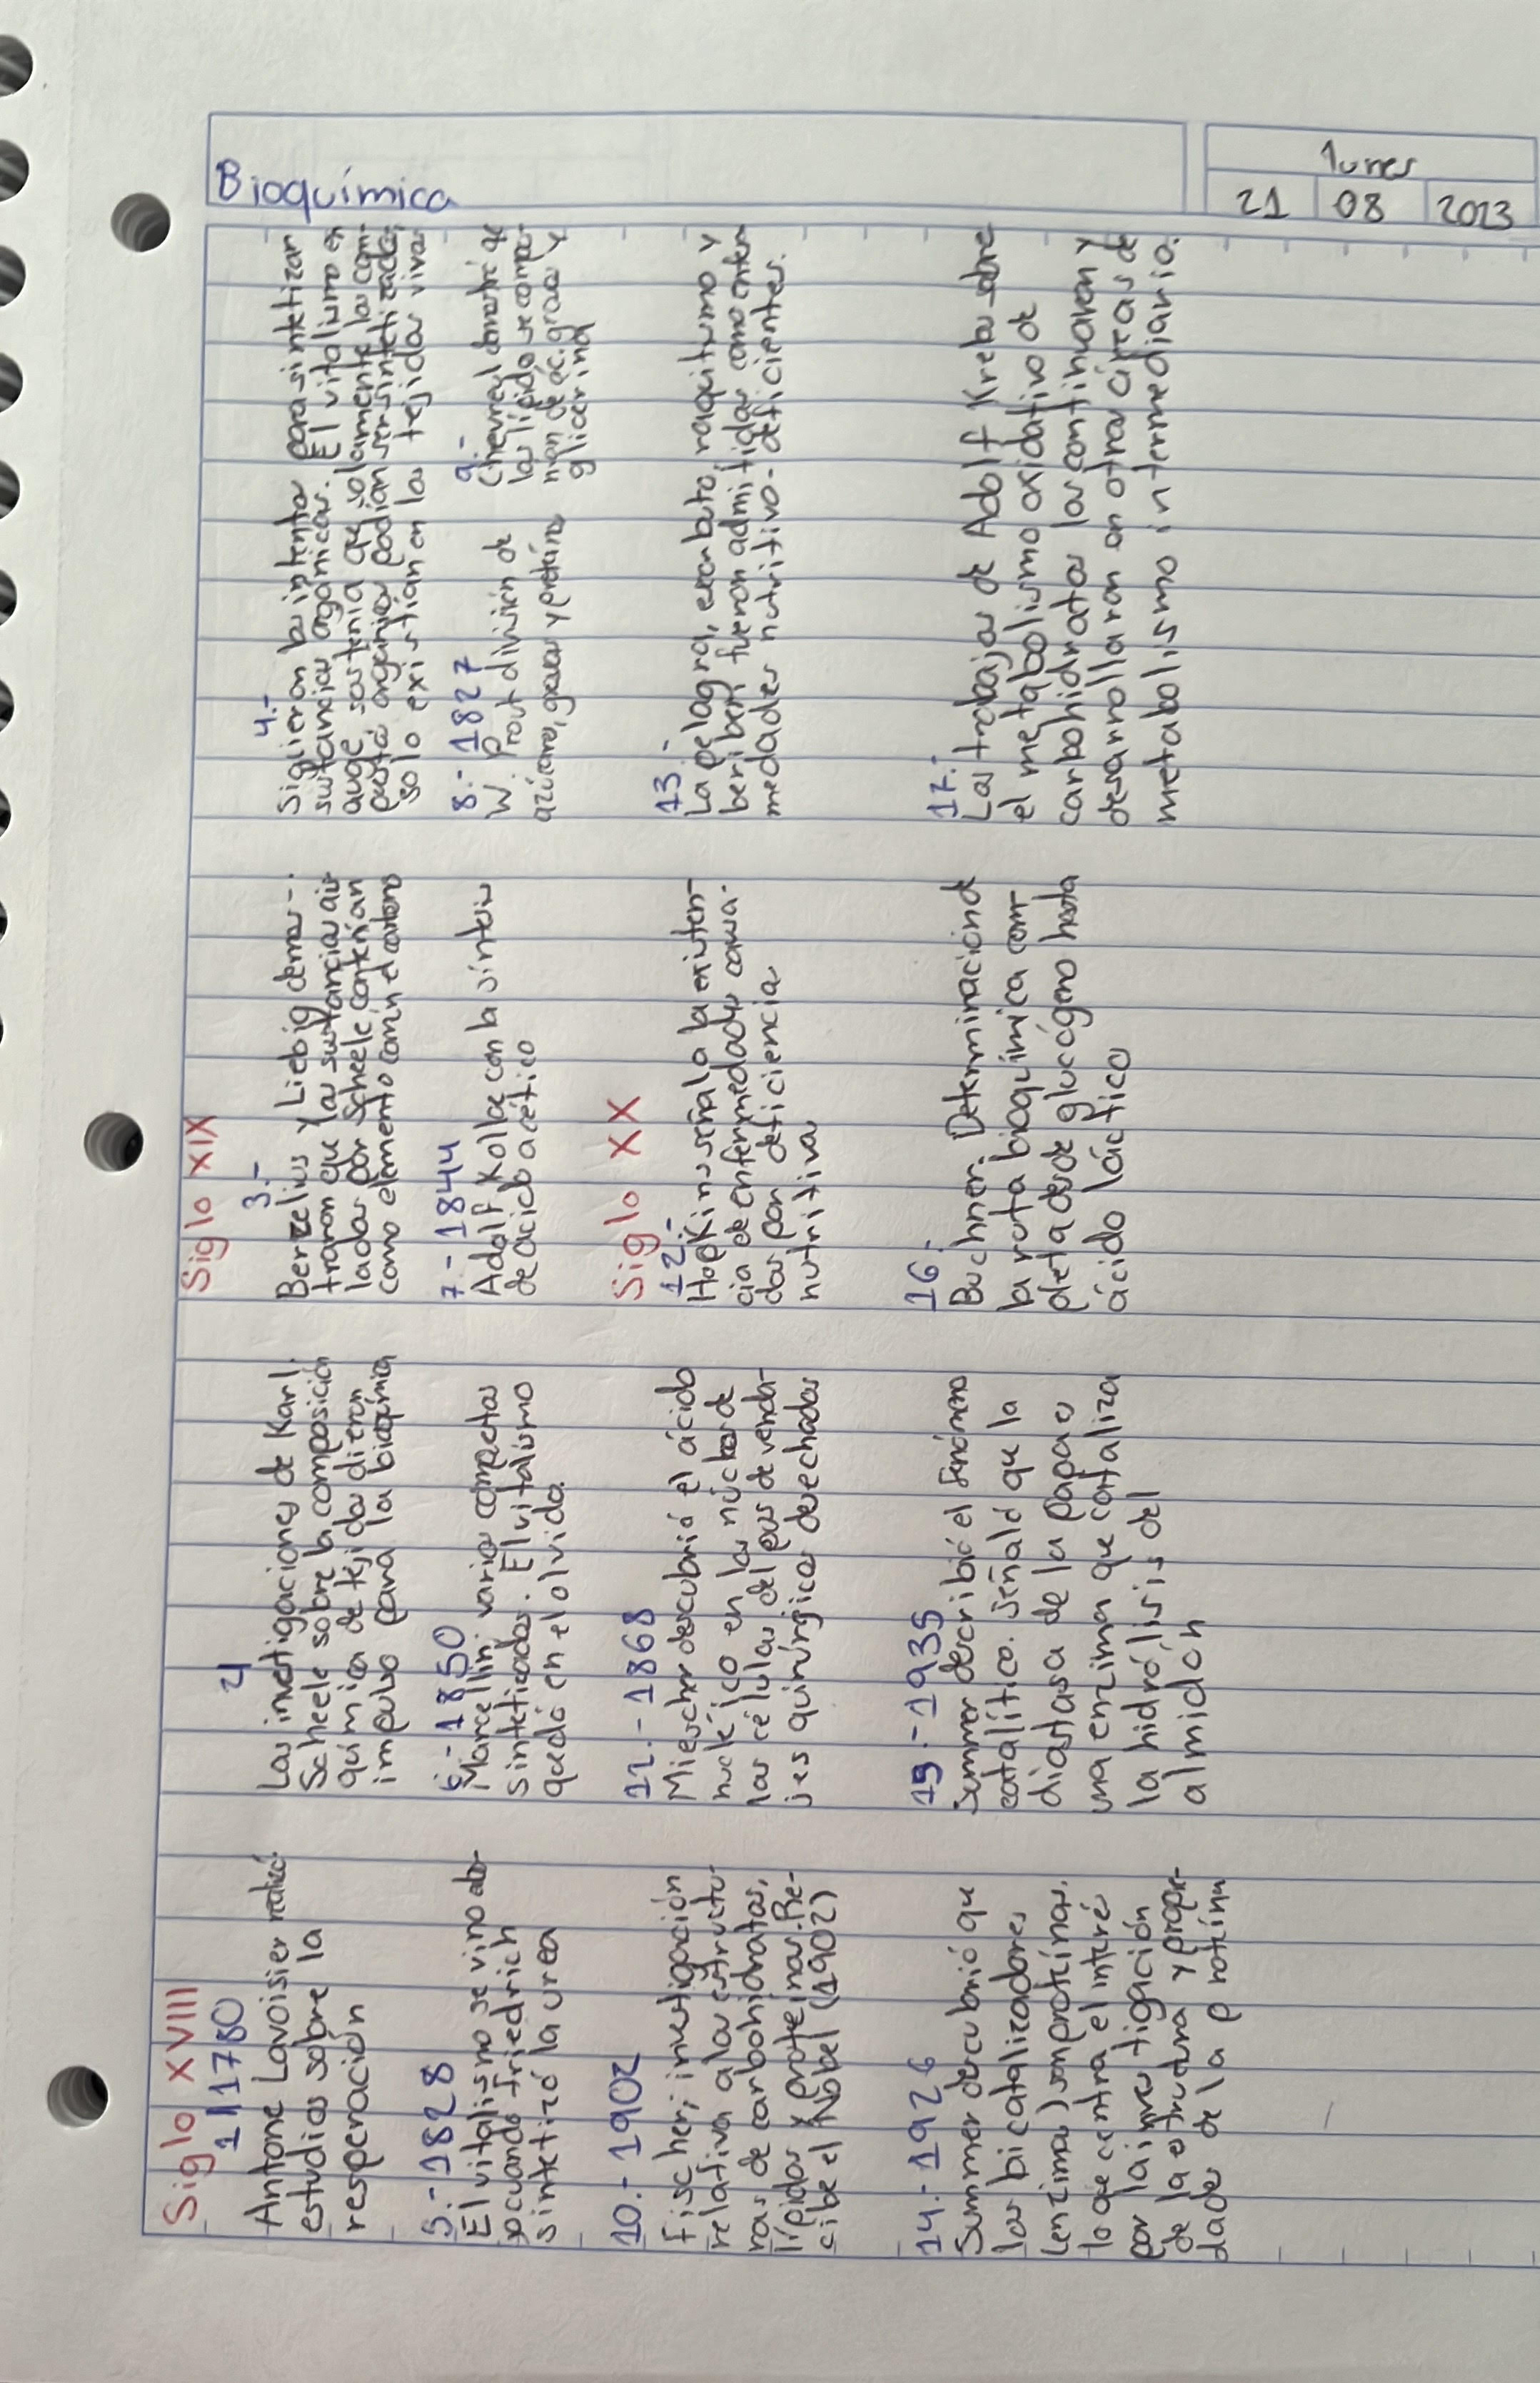 Bioquímica
lunes
21 08 2023
Siglo XVIII
1 | 1780
Antone Lavoisier realizó
estudios sobre la
respiración
2|
Las investigaciones de Karl.
Scheele sobre la composición
química de tejidos dieron
impulso para la bioquímica
Siglo XIX
3.-
Berzelius y Liebig demos-
traron que las sustancias ais
ladas por Scheele contenían
como elemento común el carbono
4.-
Siguieron los intentos para sintetizar
sustancias organicas. El vitalismo en
auge, sostenía que solamente los com-
puestos orgánicos podían ser sintetizados
solo existían en los tejidos vivos
5.- 1828
El vitalismo se vino aba-
jo cuando Friedrich
sintetizó la urea
6.- 1850
Marcellin. varios compuestos
sinteticados. El vitalismo
quedó en el olvido.
7.- 1844
Adolf Kolbe con la síntesis
de acicb acético
8.- 1827
W. Prout división de
azúcares, grasas y proteína
9.-
Chevreyl demostró que
los lípidos se compo-
nían de ác. grasos y
glicerina
10.- 1902
Fischer; investigación
relativa a las estructu-
ras de carbohidratos,
lípidos y proteínas. Re-
cibe el Nobel (1902)
11.- 1868
Miescher descubrió el ácido
nucléico en los núcleos de
las células del pus de venda-
jes quirúrgicos desechados
Siglo XX
12.-
Hopkins señala la existen-
cia de enfermedades causa-
das por deficiencia
nutritiva
13.-
La pelagra, escorbuto, raquitismo y
beriberi fueron admitidas como enfer
medades nutritivo-deficientes.
14.- 1926
Summer descubrió que
los bicatalizadores
(enzimas) son proteínas.
lo que centra el interés
por la investigación
de la estructura y propie-
dades de la proteína
15.- 1935
Summer describió el fenómeno
catalítico. Señaló que la
diastasa de la papa es
una enzima que cataliza
la hidrólisis del
almidón
16.-
Buchner. Determinación de
la ruta bioquímica com-
pleta desde glucógeno hasta
ácido láctico
17.-
Los trabajos de Adolf Krebs sobre
el metabolismo oxidativo de
carbohidratos los continuaron y
desarrollaron en otras áreas de
metabolismo intermediario.